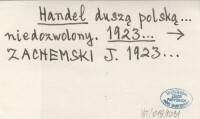 Handel duszą polską...
niedozwolony. 1923... →
ZACHEMSKI J. 1923...